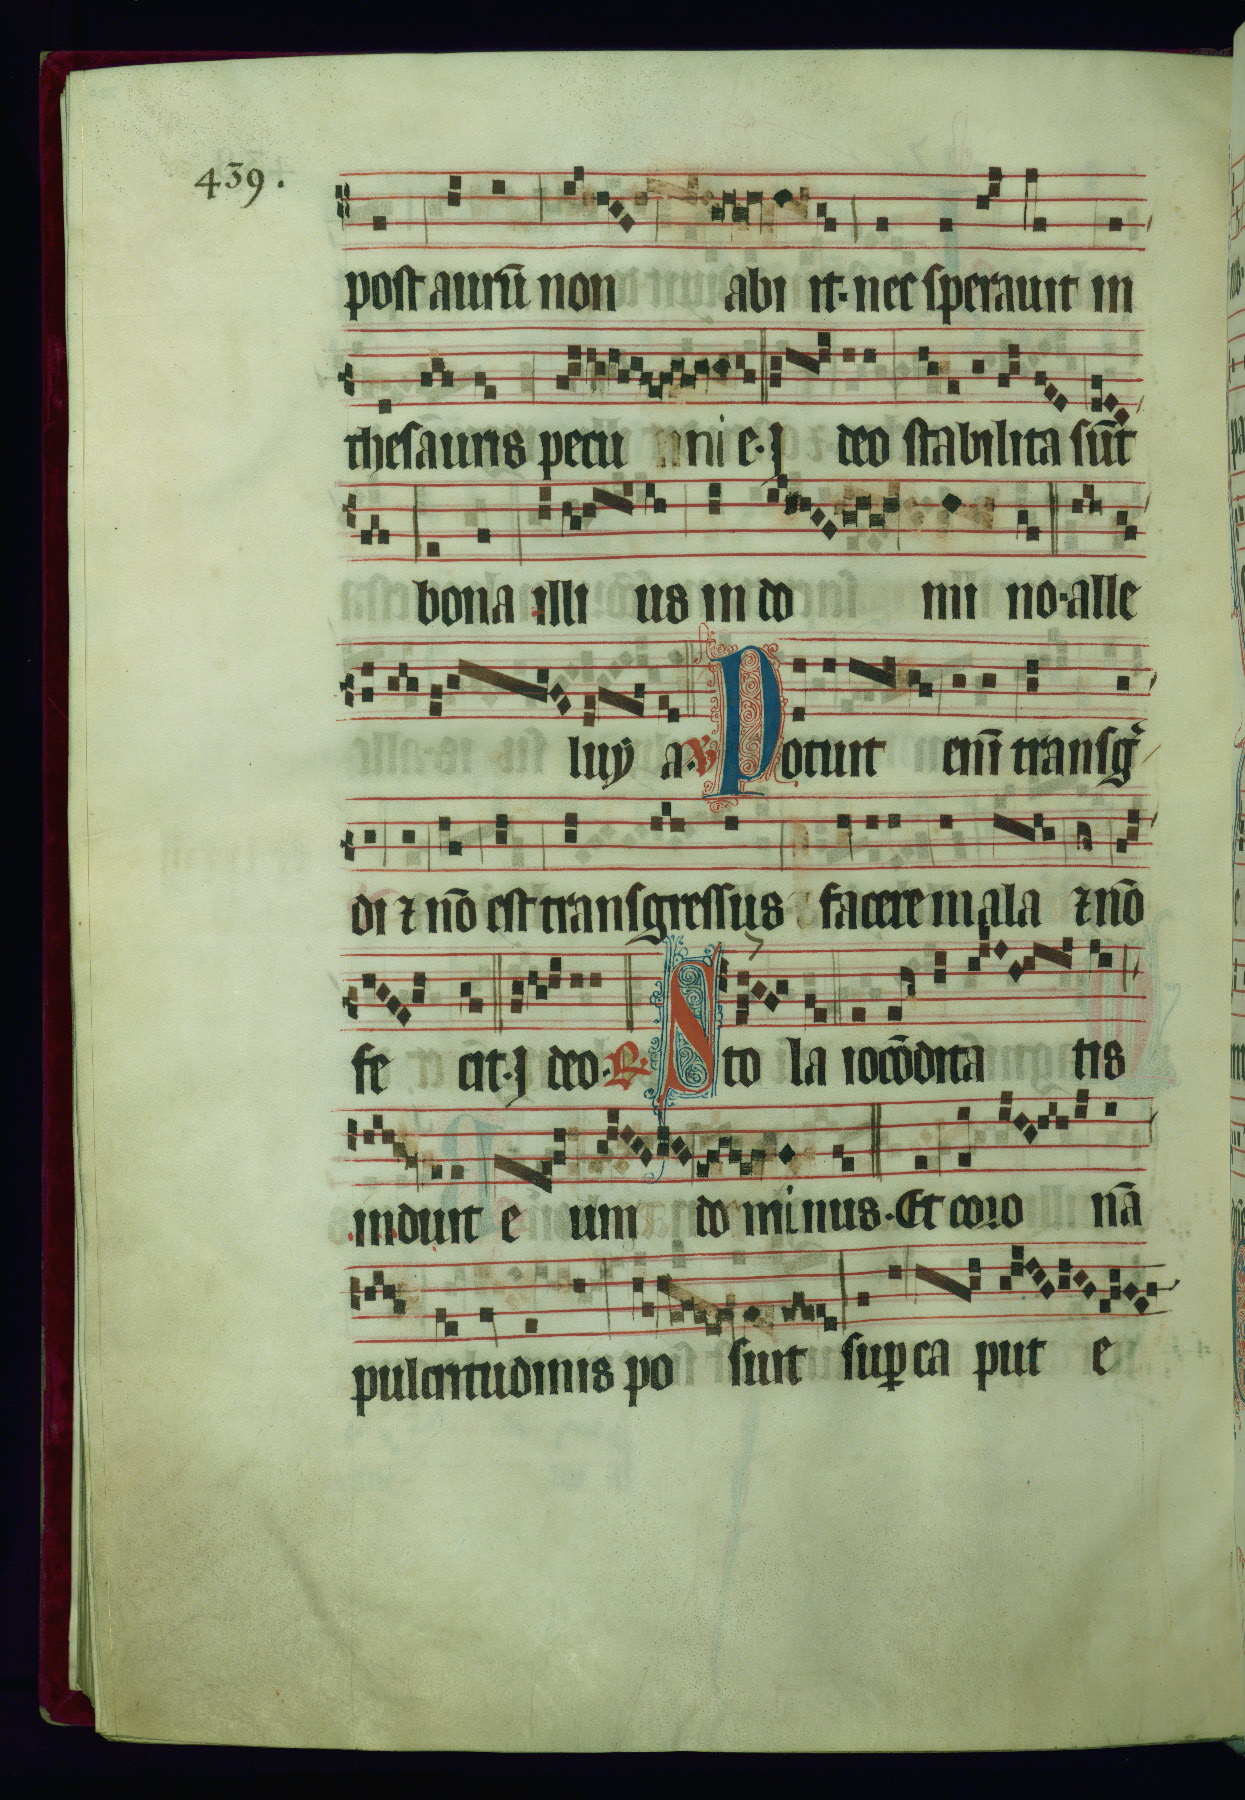 439.
post aurū non abi it. nec sperauit in
thesauris pecu nni e. J deo stabilita sūt
bona illi us in do mi no. alle
luy a. ℣ Potuit eni͞ transg͛
di ⁊ nō est transgressus facere mala ⁊ nō
fe cit. J deo. ℟ Sto la iocōdita tis
induit e um do mi nus. Et coꝛo nā
pulcritudinis po suit suꝑ ca put e